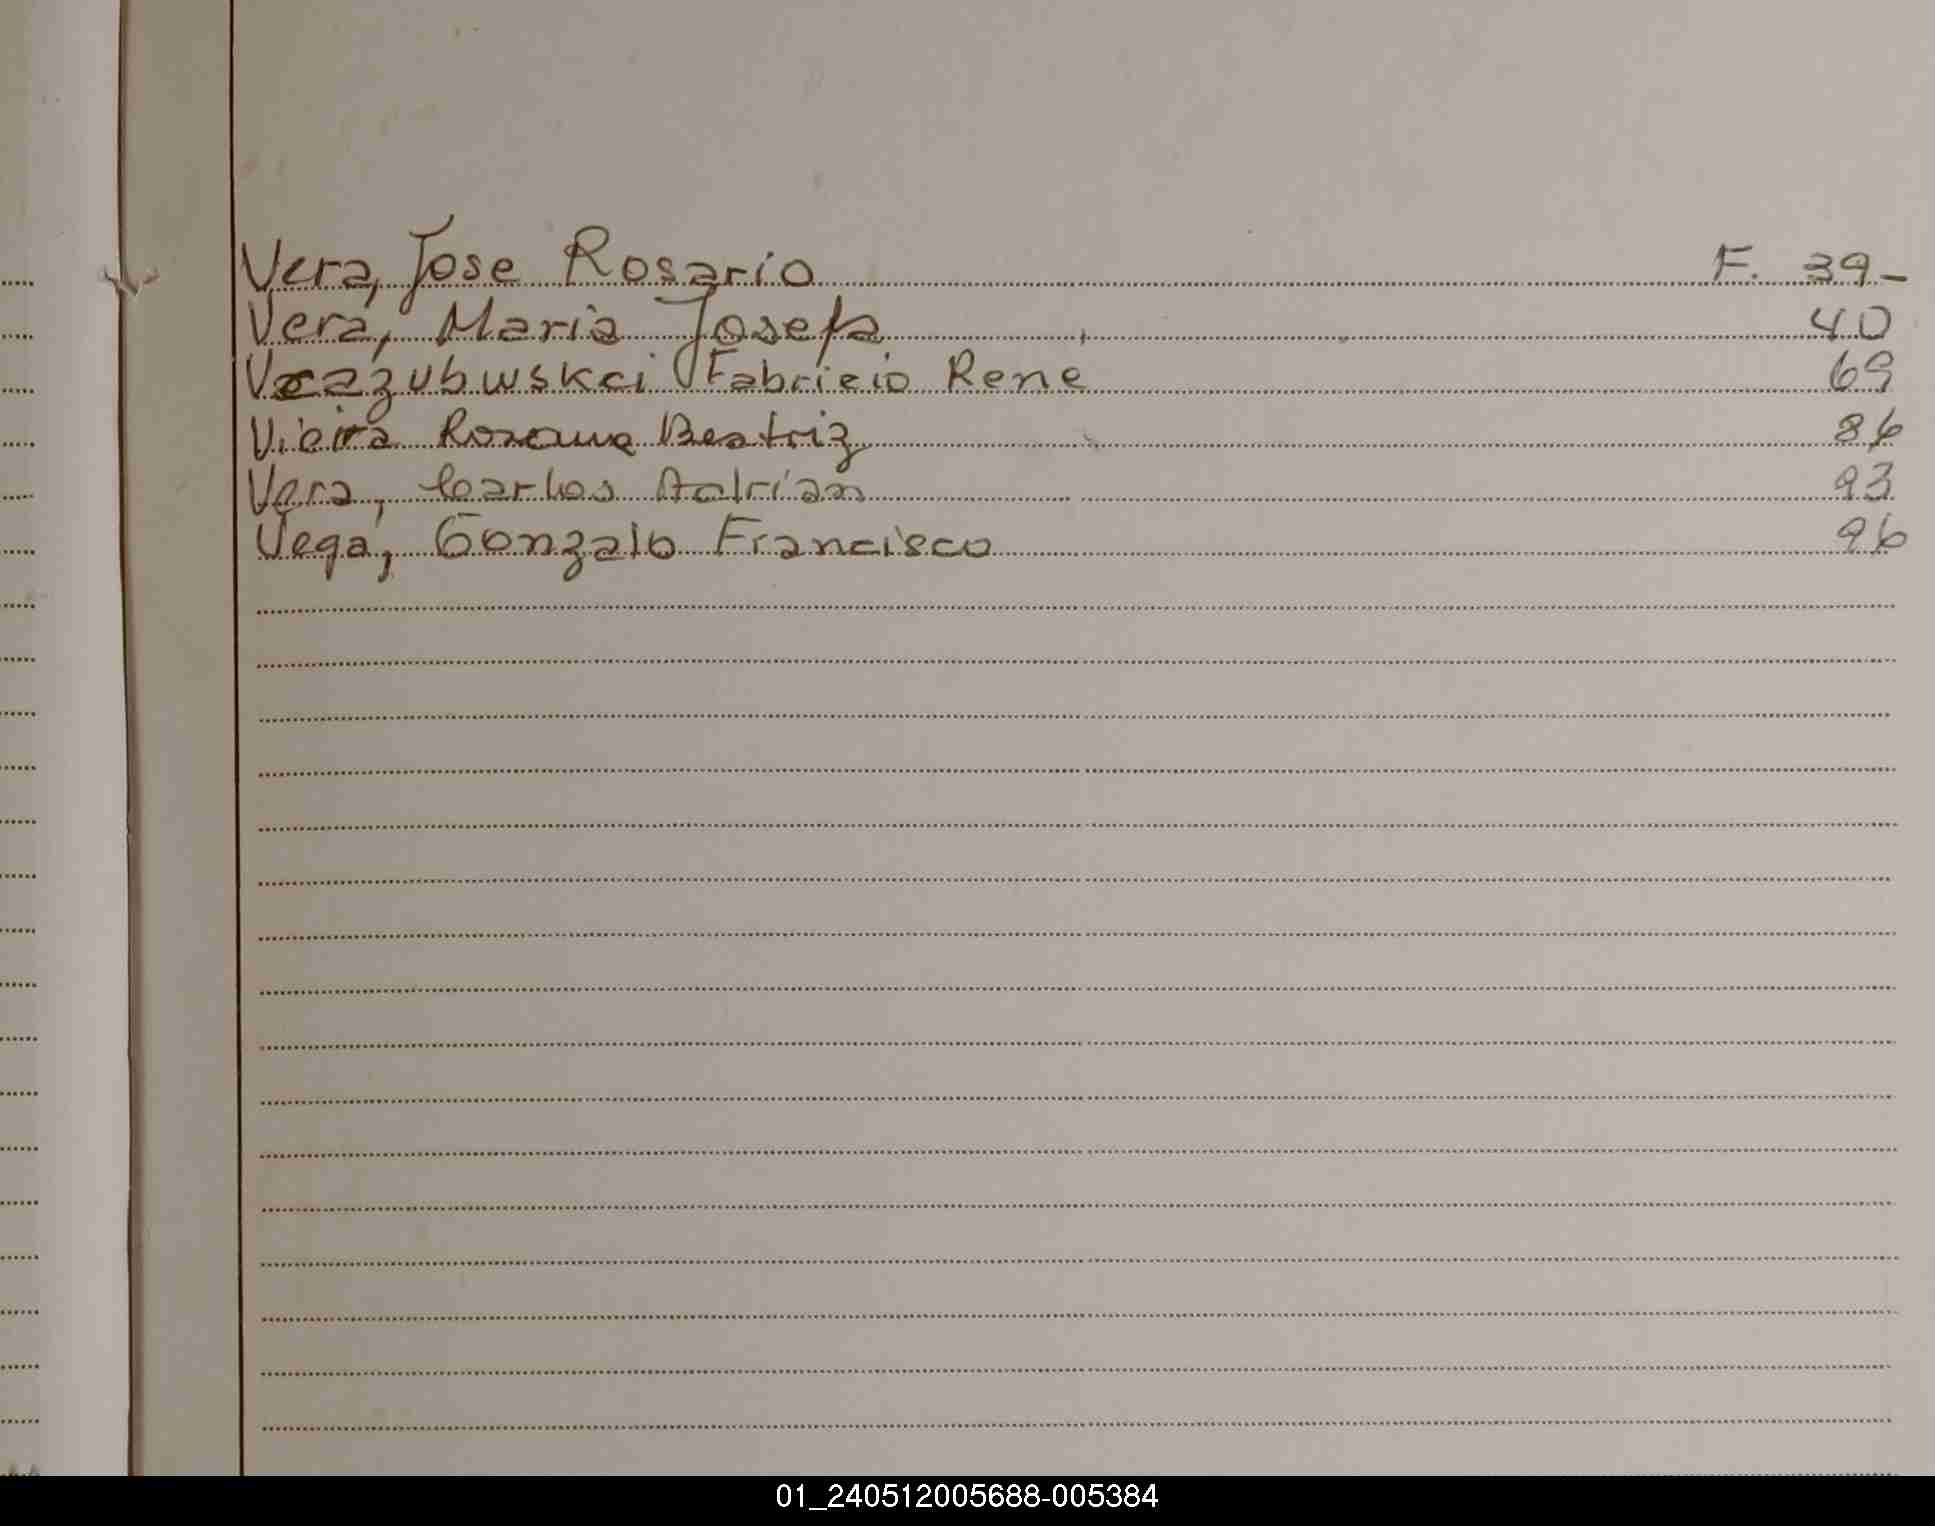 Vera, Jose Rosario F. 39-
Vera, Maria Josefa 40
Fabricio Rene 69
Vieira Rosana Beatriz 86
Vera, Carlos Adrian 93
Vega, Gonzalo Francisco 96
01_240512005688-005384